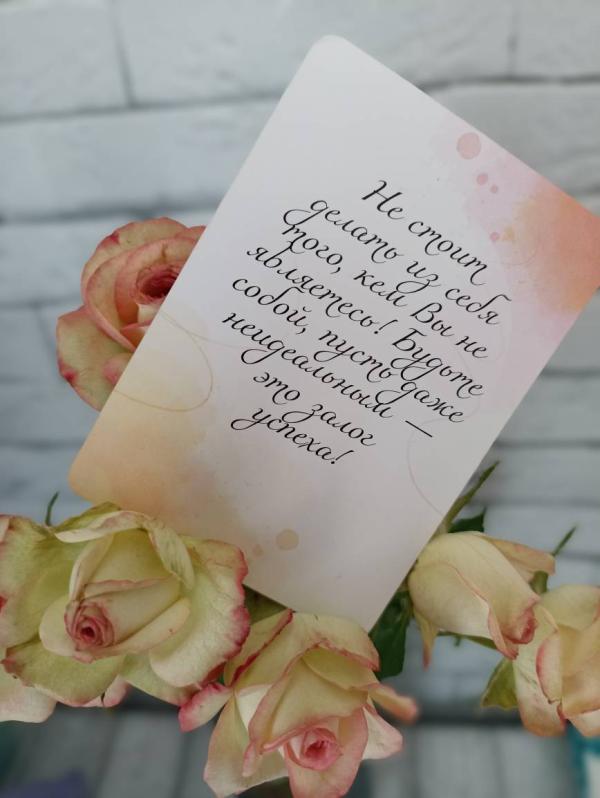 Не стоит
делать из себя
того, кем Вы не
являетесь! Будьте
собой, пусть даже
неидеальным —
это залог
успеха!